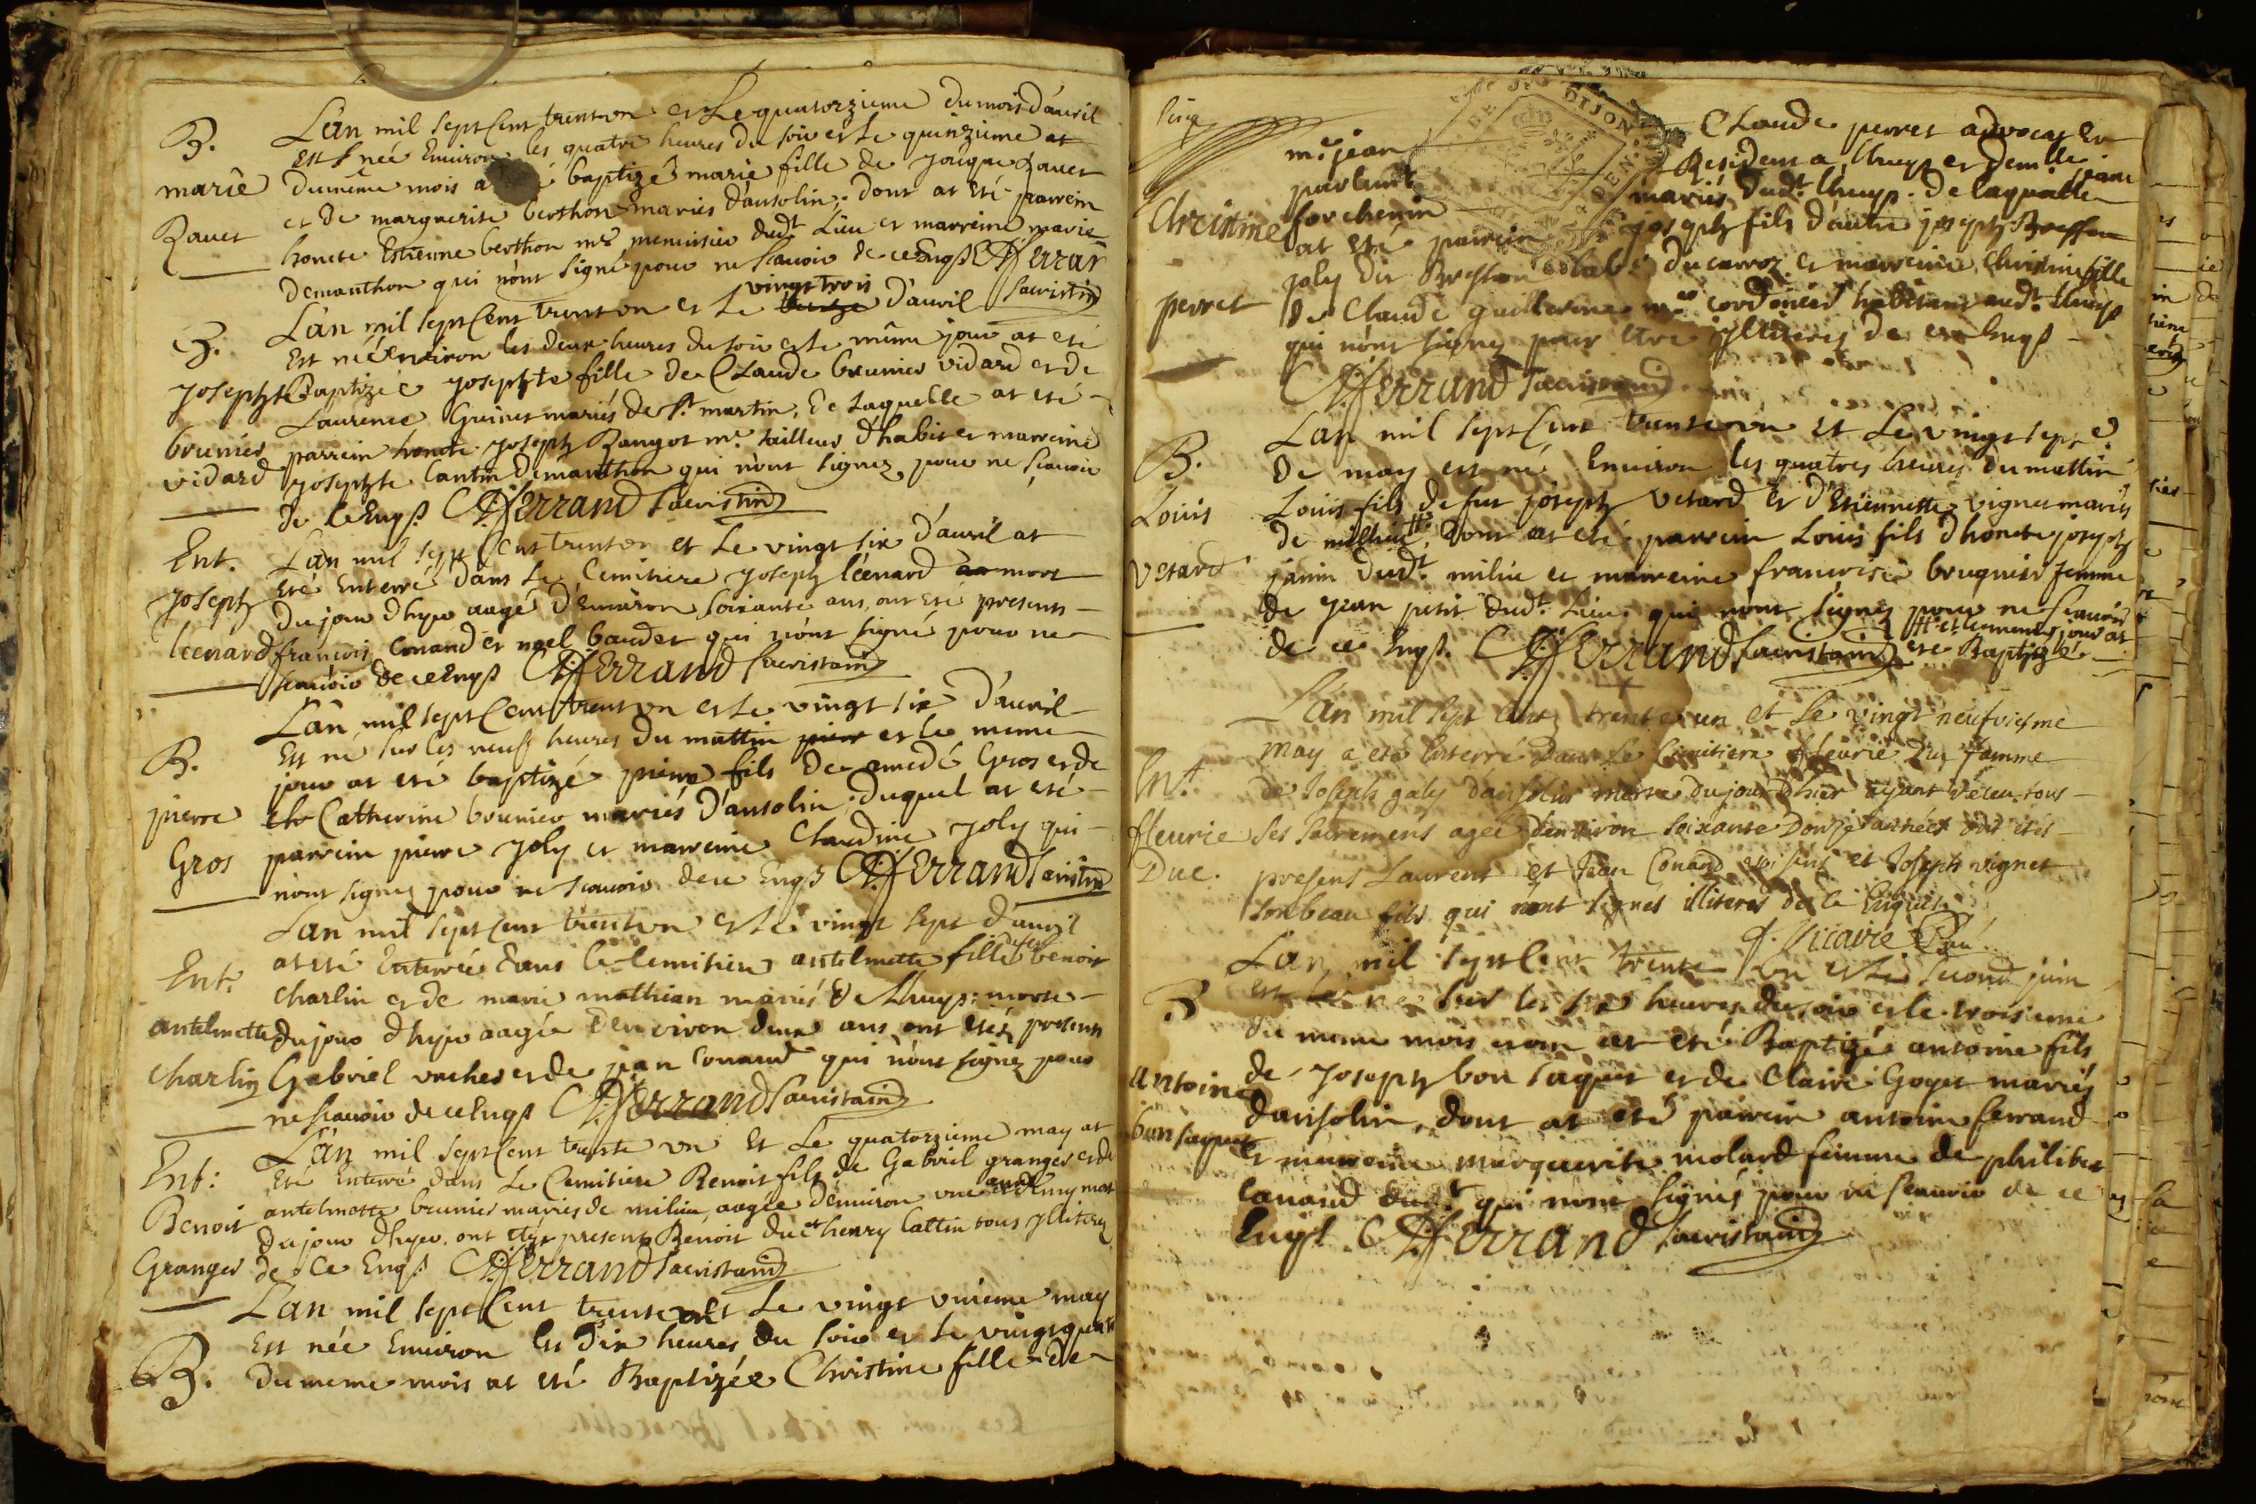 B.
marie
Zauet
L'an mil sept cent trent on et Le quatorzieme du mois d'auril
est née Enuiron les quatre heures du soir et le quinzieme at
du même mois baptizé marie fille de Zauet
et de marguerite berthon mariés d'ansolin, dont at eté parrein
honete Estienne berthon mre menuisier dudt Lieu et marreine marie
demanthon qui n'ont signé pour ne scauoir de ce Enqß Ferran
sacristin
B.
Josephte
brunier
vidard
L'an mil sept cent trent on et Le vingt trois d'auril
est née enuiron les deux heures du soir et le même jour at eté
Baptizée josephte fille de Claude brunier vidard et de
Laurence Guinet mariés de St martin, de Laquelle at eté
parrein honete joseph Bangot mre tailleur d'habit et marreine
josephte Cantin demanthon qui n'ont signez pour ne scauoir
de ce Enqß Ferrand Sacristin
Ent.
joseph
leenard
L'an mil sept cent trent on et Le vingt six d'auril at
Eté Enterré dans Le Cemitiere joseph léenard mort
du jour dhyer aagé d'Enuiron soixante ans, ont Eté presents
francois Conand et noel baudet qui n'ont signé pour ne
scauoir de ce Enqß Ferrand Sacristain
B.
pierre
Gros
L'an mil sept Cent trent vn et Le vingt six d'auril
Est né sur les neuf heures du mattin et le meme
jour at eté baptizé pierre fils de amedé Gros et de
Catherine brunier mariés d'ansolin duquel at eté
parrein pierre joly et marreine Claudine joly qui
n'ont signez pour ne scauoir de ce Enqß Ferrand Sacristin
Ent.
antelmette
charlin
L'an mil sept cent trent vn et Le vingt sept d'auril
at eté Enterrée dans le Cemitiere antelmette fille de benoit
charlin et de marie mathian mariés de Lhuys morte
du jour dhyer aagée d'enuiron deux ans ont etéz presents
Gabriel vucher et de jean Conand qui n'ont signez pour
ne scauoir de ce Enqß Ferrand Sacristain
Ent:
Benoit
Granger
L'an mil sept cent trente vn Et Le quatorzieme may at
Eté Enterré dans Le Cemitiere Benoit fils de Gabriel granger et de
antelmette brunier mariés de milieu, aagée d'enuiron vne année et demy mort
du jour dhyer, ont etéz presents Benoit duc et henry Cattin tous ylliterez
de Ce Enqß Ferrand Sacristain
B.
L'an mil sept Cent trente vn et Le vingt vnieme may
Est née Enuiron les dix heures du soir et le vingt quatre
du meme mois at eté Baptizée Christine fille de
DIJON
Christine
perret
mre jean Claude perret advocat en
parlement Resident a Lhuys et demlle jeane
forchenin mariés dudt Lhuys. de laquelle
at eté parrein joseph fils d'autre joseph
joly dit Bresson et marreine Christine fille
de Claude guillermin mre cordonier habitant audt Lhuys
qui n'ont signez pour être ylliterez de ce Enqß
Ferrand Sacristain
B.
Louis
vetard
L'an mil sept Cent trente vn et Le vingt sept
de may est né Enuiron les quatres heures du mattin
Louis fils de fut joseph vetard et d'Etiennette vignet mariés
de milieu, dont at eté parrein Louis fils d'honete joseph
janin dudt milieu et marreine francoise brugnier femme
de jean petit dudt Lieu qui n'ont signez pour ne scauoir
de ce Enqß. Ferrand Sacristain # et le meme jour at
eté Baptizé
Ent
fleurie
Duc.
L'an mil sept cent trente et un et Le vingt neufviesme
may a eté enterrée dans Le Cemitiere fleurie Duc femme
de Joseph galy d'ansolin morte du jour d'hier ayant receu tous
ses sacremens agée d'environ soixante douze années ont étés
presens Laurent et Jean Conand et Joseph vignet
son beau fils qui n'ont signés illiterés de ce Enquis
B
antoine
bonsaquet
L'an mil sept Cent trente vn et Le second juin
est né sur les six heures du soir et le troisieme
du meme mois at eté Baptizé antoine fils
de joseph bon saquet et de Claire Goyet mariés
d'ansolin, dont at eté parrein antoine ferrand
et marreine marguerite molard femme de philibert
Conand dudt qui n'ont signés pour ne scauoir de ce
Enqß Ferrand Sacristain